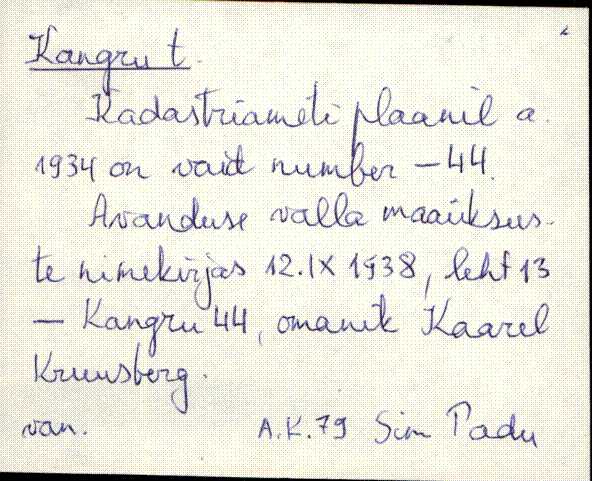 Kangru t.
Kadastriameti plaanil a.
1934 on vaid number – 44.
Avanduse valla maaüksus-
te nimekirjas 12.IX 1938, leht 13
– Kangru 44, omanik Kaarel
Kruusberg.
van. A.K.79 Sim Padu